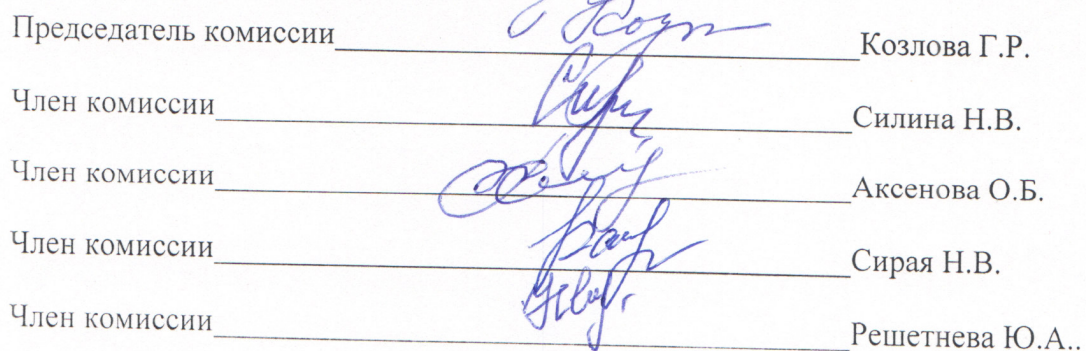 Председатель комиссии Козлова Г.Р.
Член комиссии Силина Н.В.
Член комиссии Аксенова О.Б.
Член комиссии Сирая Н.В.
Член комиссии Решетнева Ю.А..